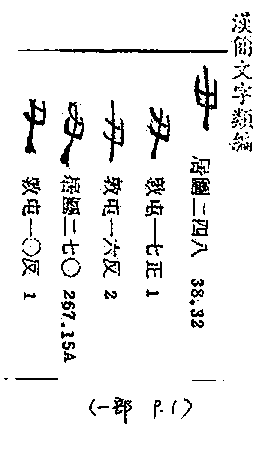 漢簡文字類編
丑 居圖二四八 38.32
丑 敦屯一七正 1
丑 敦屯一六反 2
丑 居圖二七〇 267.15A
丑 敦屯一〇反 1
(一部 P.1)